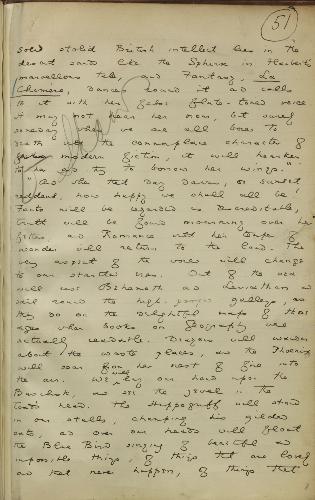 51
solid stolid British intellect lies in the
desert sands like the Sphinx in Flaubert's
marvellous tale, and Fantasy, La
Chimere, dances round it and calls
to it with her false flute-toned voice
It may not hear her now, but surely
some day when we are all bored to
death with the commonplace character of
modern fiction, it will hearken
to her and try to borrow her wings.
And when that day dawns, or sunset
reddens, how happy we shall all be
Facts will be regarded as discreditable,
Truth will be found mourning over her
fetters, and Romance with her temper of
wonder will return to the land. The
very aspect of the world will change
to our startled eyes. Out of the sea
will rise Behemoth and Leviathan and
sail round the high-pooped galleys, as
they do on the delightful maps of those
ages when books on geography were
actually readable. Dragons will wander
about the waste places, and the Phoenix
will soar from her nest of fire into
the air. We will lay our hand upon the
Basilisk, and see the jewel in the
toad's head. The Hippogriff will stand
in our stalls, champing his gilded
oats, and over our heads will float
the Blue Bird singing of beautiful and
impossible things, of things that are lovely
and that never happen, of things that